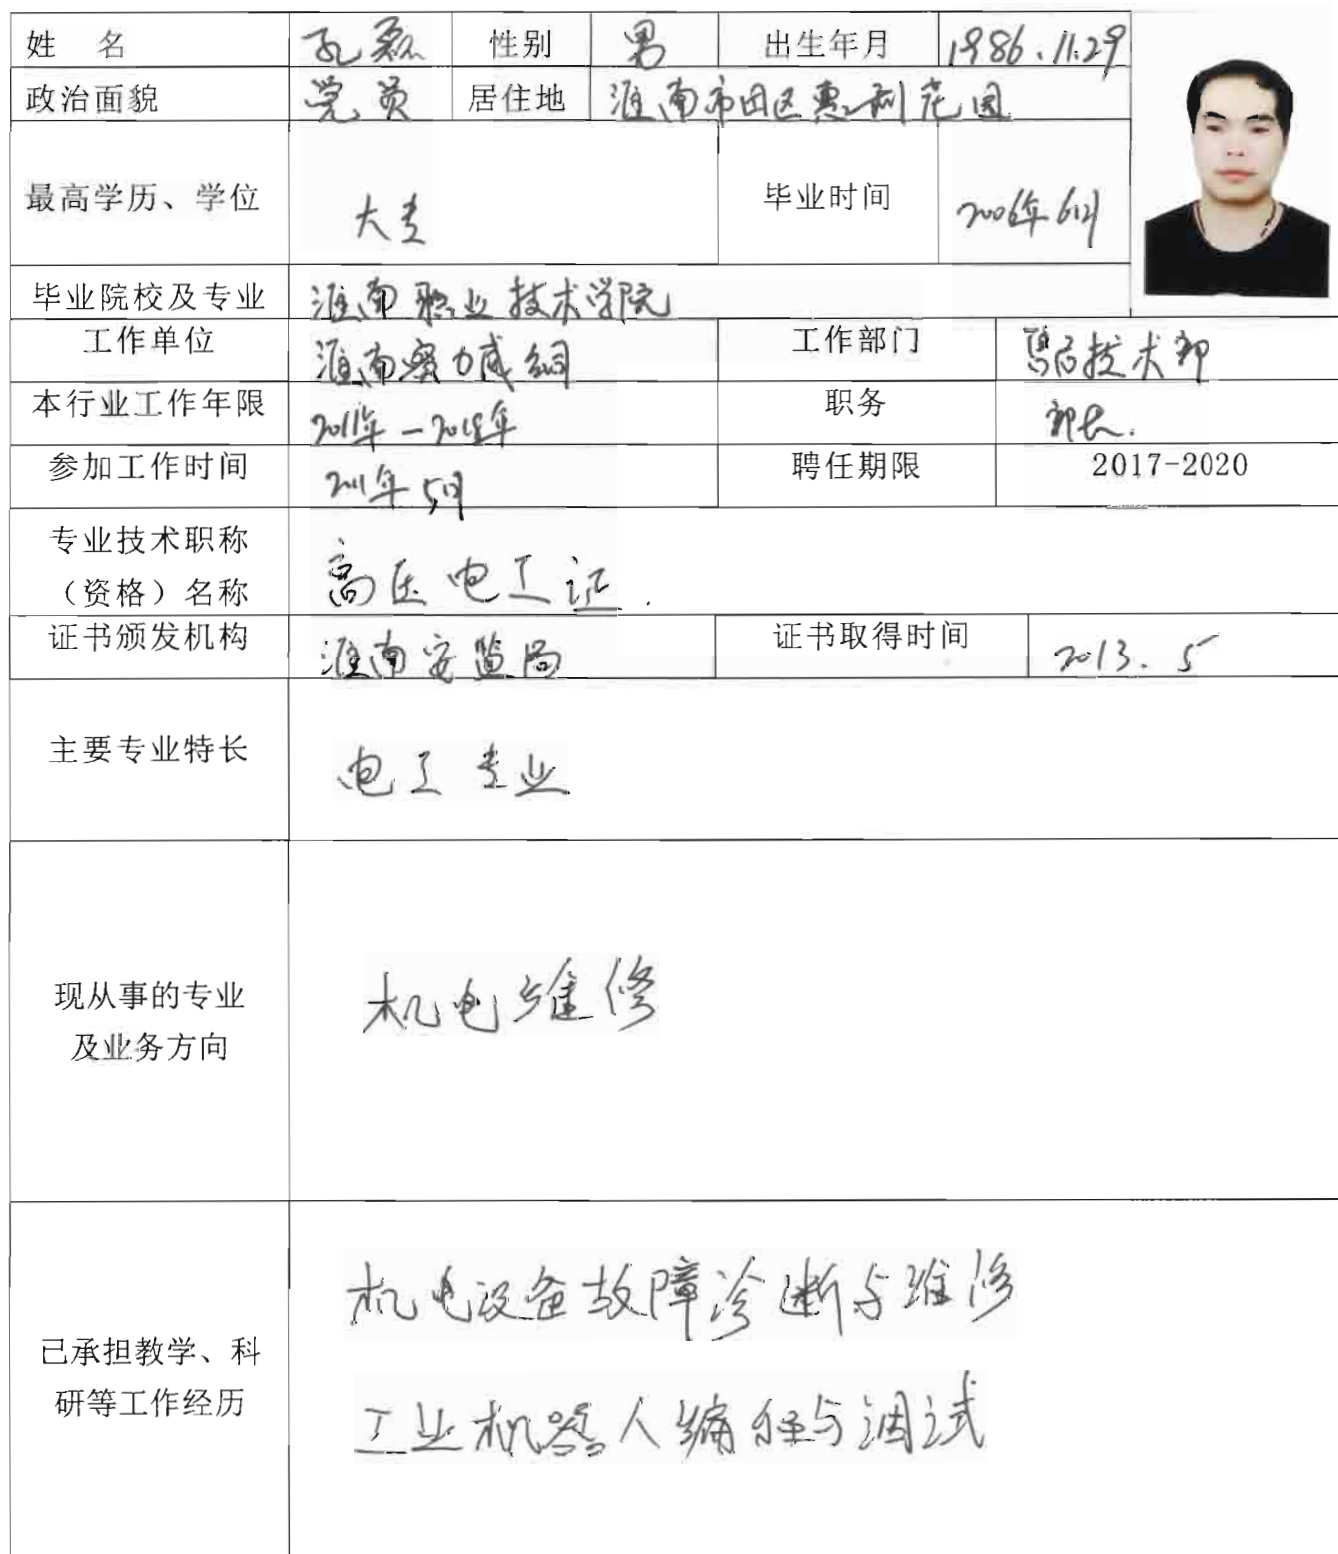 姓 名 孔磊 性别 男 出生年月 1986.11.29
政治面貌 党员 居住地 淮南市田区惠利花园
最高学历、学位 大专 毕业时间 2006年6月
毕业院校及专业 淮南职业技术学院
工作单位 淮南 力威 工作部门 售后技术部
本行业工作年限 2011年-2018年 职务 部长.
参加工作时间 2011年5月 聘任期限 2017-2020
专业技术职称
(资格)名称 高压电工证.
证书颁发机构 淮南安监局 证书取得时间 2013.5
主要专业特长 电工专业
现从事的专业
及业务方向 机电维修
机电设备故障诊断与维修
已承担教学、科
研等工作经历
工业机器人编程与调试